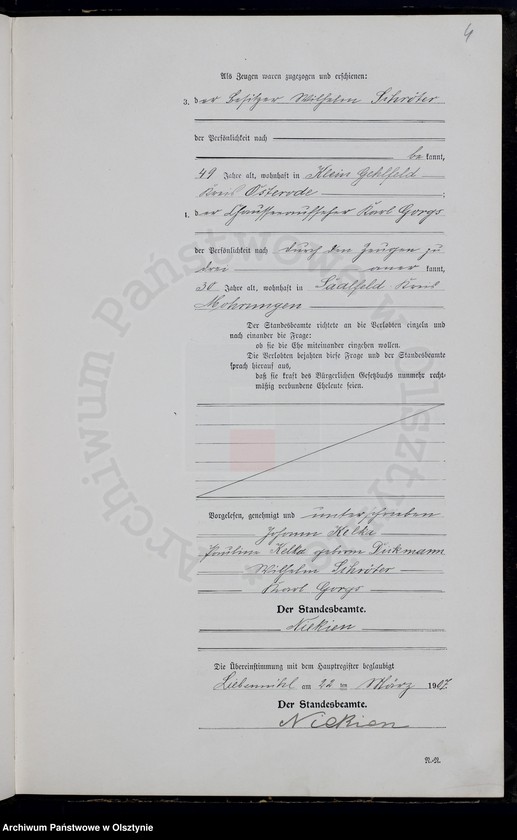 4
Als Zeugen waren zugezogen und erschienen:
3. der Besitzer Wilhelm Schröter
der Persönlichkeit nach
be kannt,
49 Jahre alt, wohnhaft in Klein Gehlfeld
Kreis Osterode ;
4. der Chausseeaufseher Karl Gorgs
der Persönlichkeit nach durch den Zeugen zu
drei aner kannt,
30 Jahre alt, wohnhaft in Saalfeld Kreis
Mohrungen
Der Standesbeamte richtete an die Verlobten einzeln und
nach einander die Frage:
ob sie die Ehe miteinander eingehen wollen.
Die Verlobten bejahten diese Frage und der Standesbeamte
sprach hierauf aus,
daß sie kraft des Bürgerlichen Gesetzbuchs nunmehr recht-
mäßig verbundene Eheleute seien.
Vorgelesen, genehmigt und unterschrieben
Johann Kelka
Pauline Kelka geborne Dickmann
Wilhelm Schröter
Karl Gorgs
Der Standesbeamte.
Niekien
Die Übereinstimmung mit dem Hauptregister beglaubigt
Liebemühl am 22 ten März 1907.
Der Standesbeamte.
Niekien
Archiwum Państwowe w Olsztynie
Archiwum Państwowe w Olsztynie